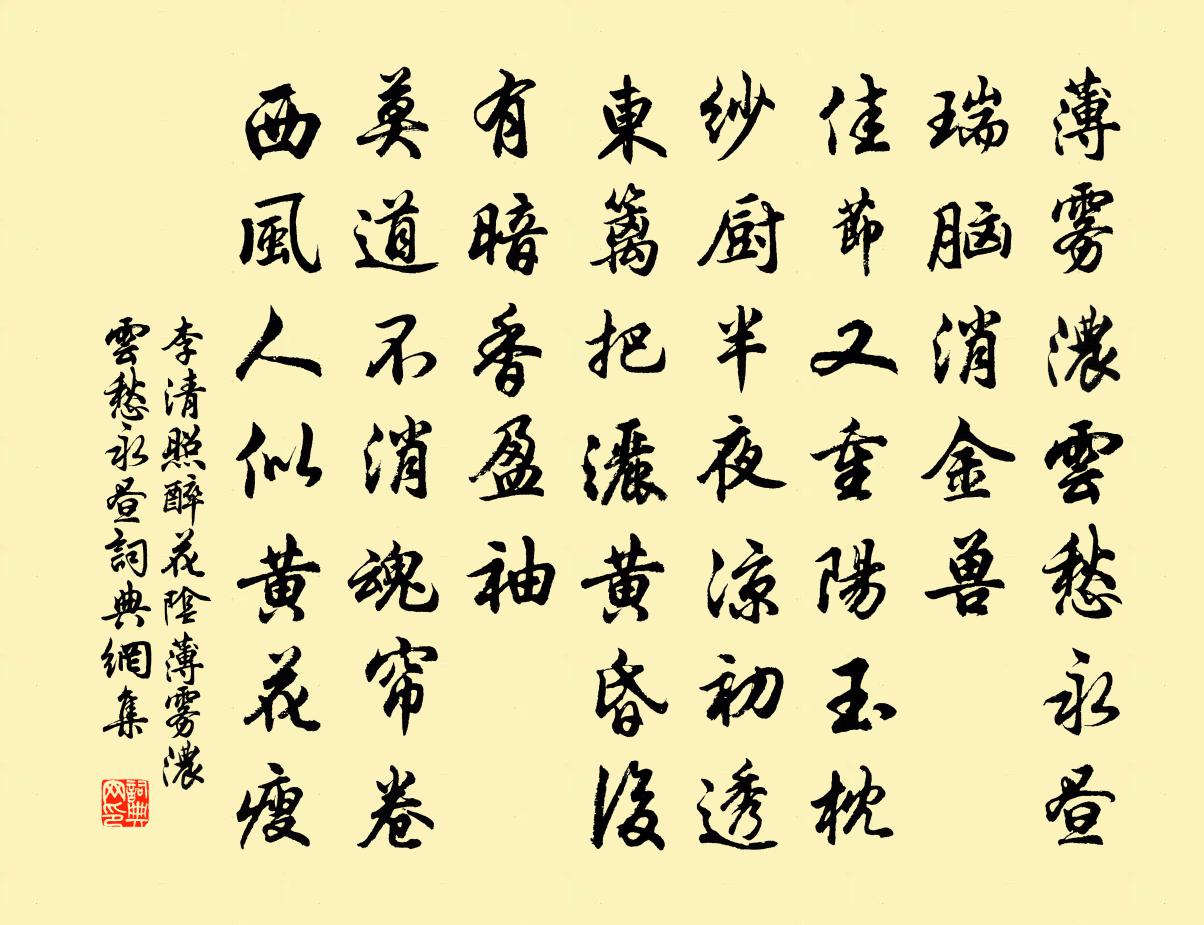 薄雾濃雲愁永昼
瑞脑消金兽
佳節又重陽玉枕
紗厨半夜凉初透
東篱把灑黄昏後
有暗香盈袖
莫道不消魂帘卷
西風人似黄花瘦
李清照醉花陰薄雾濃
雲愁永昼詞典網集
詞典
网印